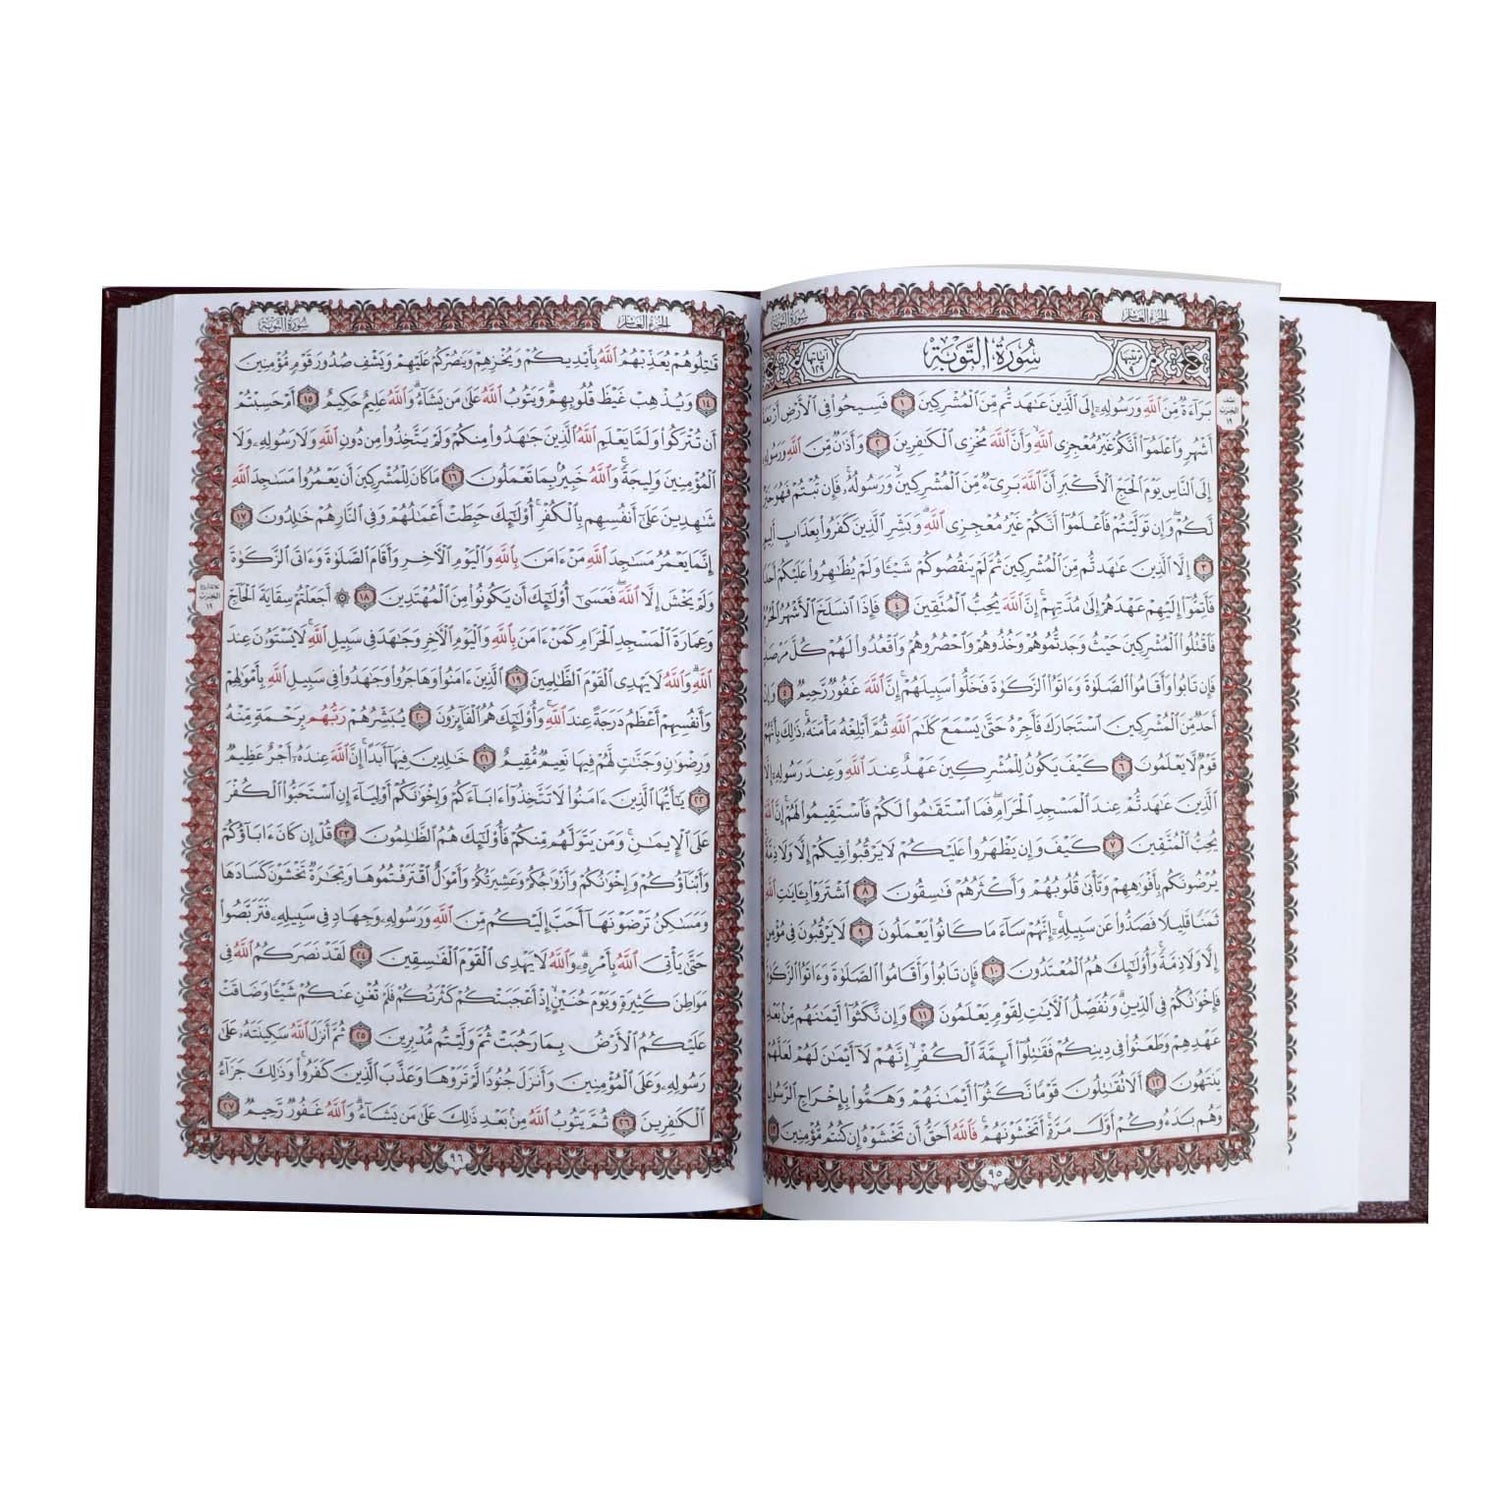 سُورَةُ التَّوْبَةِ
الجزء العاشر
ترتيبها ٩
سُورَةُ التَّوْبَةِ
آياتها ١٢٩
بَرَآءَةٌ مِّنَ ٱللَّهِ وَرَسُولِهِۦٓ إِلَى ٱلَّذِينَ عَٰهَدتُّم مِّنَ ٱلْمُشْرِكِينَ ١ فَسِيحُوا۟ فِى ٱلْأَرْضِ أَرْبَعَةَ
أَشْهُرٍ وَٱعْلَمُوٓا۟ أَنَّكُمْ غَيْرُ مُعْجِزِى ٱللَّهِ ۙ وَأَنَّ ٱللَّهَ مُخْزِى ٱلْكَٰفِرِينَ ٢ وَأَذَٰنٌ مِّنَ ٱللَّهِ وَرَسُولِهِۦٓ
إِلَى ٱلنَّاسِ يَوْمَ ٱلْحَجِّ ٱلْأَكْبَرِ أَنَّ ٱللَّهَ بَرِىٓءٌ مِّنَ ٱلْمُشْرِكِينَ ۙ وَرَسُولُهُۥ ۚ فَإِن تُبْتُمْ فَهُوَ خَيْرٌ
لَّكُمْ ۖ وَإِن تَوَلَّيْتُمْ فَٱعْلَمُوٓا۟ أَنَّكُمْ غَيْرُ مُعْجِزِى ٱللَّهِ ۗ وَبَشِّرِ ٱلَّذِينَ كَفَرُوا۟ بِعَذَابٍ أَلِيمٍ
٣ إِلَّا ٱلَّذِينَ عَٰهَدتُّم مِّنَ ٱلْمُشْرِكِينَ ثُمَّ لَمْ يَنقُصُوكُمْ شَيْـًٔا وَلَمْ يُظَٰهِرُوا۟ عَلَيْكُمْ أَحَدًا
فَأَتِمُّوٓا۟ إِلَيْهِمْ عَهْدَهُمْ إِلَىٰ مُدَّتِهِمْ ۚ إِنَّ ٱللَّهَ يُحِبُّ ٱلْمُتَّقِينَ ٤ فَإِذَا ٱنسَلَخَ ٱلْأَشْهُرُ ٱلْحُرُمُ
فَٱقْتُلُوا۟ ٱلْمُشْرِكِينَ حَيْثُ وَجَدتُّمُوهُمْ وَخُذُوهُمْ وَٱحْصُرُوهُمْ وَٱقْعُدُوا۟ لَهُمْ كُلَّ مَرْصَدٍ ۚ
فَإِن تَابُوا۟ وَأَقَامُوا۟ ٱلصَّلَوٰةَ وَءَاتَوُا۟ ٱلزَّكَوٰةَ فَخَلُّوا۟ سَبِيلَهُمْ ۚ إِنَّ ٱللَّهَ غَفُورٌ رَّحِيمٌ ٥ وَإِنْ
أَحَدٌ مِّنَ ٱلْمُشْرِكِينَ ٱسْتَجَارَكَ فَأَجِرْهُ حَتَّىٰ يَسْمَعَ كَلَٰمَ ٱللَّهِ ثُمَّ أَبْلِغْهُ مَأْمَنَهُۥ ۚ ذَٰلِكَ بِأَنَّهُمْ
قَوْمٌ لَّا يَعْلَمُونَ ٦ كَيْفَ يَكُونُ لِلْمُشْرِكِينَ عَهْدٌ عِندَ ٱللَّهِ وَعِندَ رَسُولِهِۦٓ إِلَّا
ٱلَّذِينَ عَٰهَدتُّمْ عِندَ ٱلْمَسْجِدِ ٱلْحَرَامِ ۖ فَمَا ٱسْتَقَٰمُوا۟ لَكُمْ فَٱسْتَقِيمُوا۟ لَهُمْ ۚ إِنَّ ٱللَّهَ
يُحِبُّ ٱلْمُتَّقِينَ ٧ كَيْفَ وَإِن يَظْهَرُوا۟ عَلَيْكُمْ لَا يَرْقُبُوا۟ فِيكُمْ إِلًّا وَلَا ذِمَّةً ۚ
يُرْضُونَكُم بِأَفْوَٰهِهِمْ وَتَأْبَىٰ قُلُوبُهُمْ وَأَكْثَرُهُمْ فَٰسِقُونَ ٨ ٱشْتَرَوْا۟ بِـَٔايَٰتِ ٱللَّهِ
ثَمَنًا قَلِيلًا فَصَدُّوا۟ عَن سَبِيلِهِۦٓ ۚ إِنَّهُمْ سَآءَ مَا كَانُوا۟ يَعْمَلُونَ ٩ لَا يَرْقُبُونَ فِى مُؤْمِنٍ
إِلًّا وَلَا ذِمَّةً ۚ وَأُو۟لَٰٓئِكَ هُمُ ٱلْمُعْتَدُونَ ١٠ فَإِن تَابُوا۟ وَأَقَامُوا۟ ٱلصَّلَوٰةَ وَءَاتَوُا۟ ٱلزَّكَوٰةَ
فَإِخْوَٰنُكُمْ فِى ٱلدِّينِ ۗ وَنُفَصِّلُ ٱلْـَٔايَٰتِ لِقَوْمٍ يَعْلَمُونَ ١١ وَإِن نَّكَثُوٓا۟ أَيْمَٰنَهُم مِّنۢ بَعْدِ
عَهْدِهِمْ وَطَعَنُوا۟ فِى دِينِكُمْ فَقَٰتِلُوٓا۟ أَئِمَّةَ ٱلْكُفْرِ ۙ إِنَّهُمْ لَآ أَيْمَٰنَ لَهُمْ لَعَلَّهُمْ
يَنتَهُونَ ١٢ أَلَا تُقَٰتِلُونَ قَوْمًا نَّكَثُوٓا۟ أَيْمَٰنَهُمْ وَهَمُّوا۟ بِإِخْرَاجِ ٱلرَّسُولِ
وَهُم بَدَءُوكُمْ أَوَّلَ مَرَّةٍ ۚ أَتَخْشَوْنَهُمْ ۚ فَٱللَّهُ أَحَقُّ أَن تَخْشَوْهُ إِن كُنتُم مُّؤْمِنِينَ ١٣
نصف الحزب ١٩
٩٥
الجزء العاشر
سُورَةُ التَّوْبَةِ
قَٰتِلُوهُمْ يُعَذِّبْهُمُ ٱللَّهُ بِأَيْدِيكُمْ وَيُخْزِهِمْ وَيَنصُرْكُمْ عَلَيْهِمْ وَيَشْفِ صُدُورَ قَوْمٍ مُّؤْمِنِينَ
١٤ وَيُذْهِبْ غَيْظَ قُلُوبِهِمْ ۗ وَيَتُوبُ ٱللَّهُ عَلَىٰ مَن يَشَآءُ ۗ وَٱللَّهُ عَلِيمٌ حَكِيمٌ ١٥ أَمْ حَسِبْتُمْ
أَن تُتْرَكُوا۟ وَلَمَّا يَعْلَمِ ٱللَّهُ ٱلَّذِينَ جَٰهَدُوا۟ مِنكُمْ وَلَمْ يَتَّخِذُوا۟ مِن دُونِ ٱللَّهِ وَلَا رَسُولِهِۦ وَلَا
ٱلْمُؤْمِنِينَ وَلِيجَةً ۚ وَٱللَّهُ خَبِيرٌۢ بِمَا تَعْمَلُونَ ١٦ مَا كَانَ لِلْمُشْرِكِينَ أَن يَعْمُرُوا۟ مَسَٰجِدَ ٱللَّهِ
شَٰهِدِينَ عَلَىٰٓ أَنفُسِهِم بِٱلْكُفْرِ ۚ أُو۟لَٰٓئِكَ حَبِطَتْ أَعْمَٰلُهُمْ وَفِى ٱلنَّارِ هُمْ خَٰلِدُونَ ١٧
إِنَّمَا يَعْمُرُ مَسَٰجِدَ ٱللَّهِ مَنْ ءَامَنَ بِٱللَّهِ وَٱلْيَوْمِ ٱلْـَٔاخِرِ وَأَقَامَ ٱلصَّلَوٰةَ وَءَاتَى ٱلزَّكَوٰةَ
وَلَمْ يَخْشَ إِلَّا ٱللَّهَ ۖ فَعَسَىٰٓ أُو۟لَٰٓئِكَ أَن يَكُونُوا۟ مِنَ ٱلْمُهْتَدِينَ ١٨ ۞ أَجَعَلْتُمْ سِقَايَةَ ٱلْحَآجِّ
وَعِمَارَةَ ٱلْمَسْجِدِ ٱلْحَرَامِ كَمَنْ ءَامَنَ بِٱللَّهِ وَٱلْيَوْمِ ٱلْـَٔاخِرِ وَجَٰهَدَ فِى سَبِيلِ ٱللَّهِ ۚ لَا يَسْتَوُۥنَ عِندَ
ٱللَّهِ ۗ وَٱللَّهُ لَا يَهْدِى ٱلْقَوْمَ ٱلظَّٰلِمِينَ ١٩ ٱلَّذِينَ ءَامَنُوا۟ وَهَاجَرُوا۟ وَجَٰهَدُوا۟ فِى سَبِيلِ ٱللَّهِ بِأَمْوَٰلِهِمْ
وَأَنفُسِهِمْ أَعْظَمُ دَرَجَةً عِندَ ٱللَّهِ ۚ وَأُو۟لَٰٓئِكَ هُمُ ٱلْفَآئِزُونَ ٢٠ يُبَشِّرُهُمْ رَبُّهُم بِرَحْمَةٍ مِّنْهُ
وَرِضْوَٰنٍ وَجَنَّٰتٍ لَّهُمْ فِيهَا نَعِيمٌ مُّقِيمٌ ٢١ خَٰلِدِينَ فِيهَآ أَبَدًا ۚ إِنَّ ٱللَّهَ عِندَهُۥٓ أَجْرٌ عَظِيمٌ
٢٢ يَٰٓأَيُّهَا ٱلَّذِينَ ءَامَنُوا۟ لَا تَتَّخِذُوٓا۟ ءَابَآءَكُمْ وَإِخْوَٰنَكُمْ أَوْلِيَآءَ إِنِ ٱسْتَحَبُّوا۟ ٱلْكُفْرَ
عَلَى ٱلْإِيمَٰنِ ۚ وَمَن يَتَوَلَّهُم مِّنكُمْ فَأُو۟لَٰٓئِكَ هُمُ ٱلظَّٰلِمُونَ ٢٣ قُلْ إِن كَانَ ءَابَآؤُكُمْ
وَأَبْنَآؤُكُمْ وَإِخْوَٰنُكُمْ وَأَزْوَٰجُكُمْ وَعَشِيرَتُكُمْ وَأَمْوَٰلٌ ٱقْتَرَفْتُمُوهَا وَتِجَٰرَةٌ تَخْشَوْنَ كَسَادَهَا
وَمَسَٰكِنُ تَرْضَوْنَهَآ أَحَبَّ إِلَيْكُم مِّنَ ٱللَّهِ وَرَسُولِهِۦ وَجِهَادٍ فِى سَبِيلِهِۦ فَتَرَبَّصُوا۟
حَتَّىٰ يَأْتِىَ ٱللَّهُ بِأَمْرِهِۦ ۗ وَٱللَّهُ لَا يَهْدِى ٱلْقَوْمَ ٱلْفَٰسِقِينَ ٢٤ لَقَدْ نَصَرَكُمُ ٱللَّهُ فِى
مَوَاطِنَ كَثِيرَةٍ ۙ وَيَوْمَ حُنَيْنٍ ۙ إِذْ أَعْجَبَتْكُمْ كَثْرَتُكُمْ فَلَمْ تُغْنِ عَنكُمْ شَيْـًٔا وَضَاقَتْ
عَلَيْكُمُ ٱلْأَرْضُ بِمَا رَحُبَتْ ثُمَّ وَلَّيْتُم مُّدْبِرِينَ ٢٥ ثُمَّ أَنزَلَ ٱللَّهُ سَكِينَتَهُۥ عَلَىٰ
رَسُولِهِۦ وَعَلَى ٱلْمُؤْمِنِينَ وَأَنزَلَ جُنُودًا لَّمْ تَرَوْهَا وَعَذَّبَ ٱلَّذِينَ كَفَرُوا۟ ۚ وَذَٰلِكَ جَزَآءُ
ٱلْكَٰفِرِينَ ٢٦ ثُمَّ يَتُوبُ ٱللَّهُ مِنۢ بَعْدِ ذَٰلِكَ عَلَىٰ مَن يَشَآءُ ۗ وَٱللَّهُ غَفُورٌ رَّحِيمٌ ٢٧
الحزب ١٩
٩٦